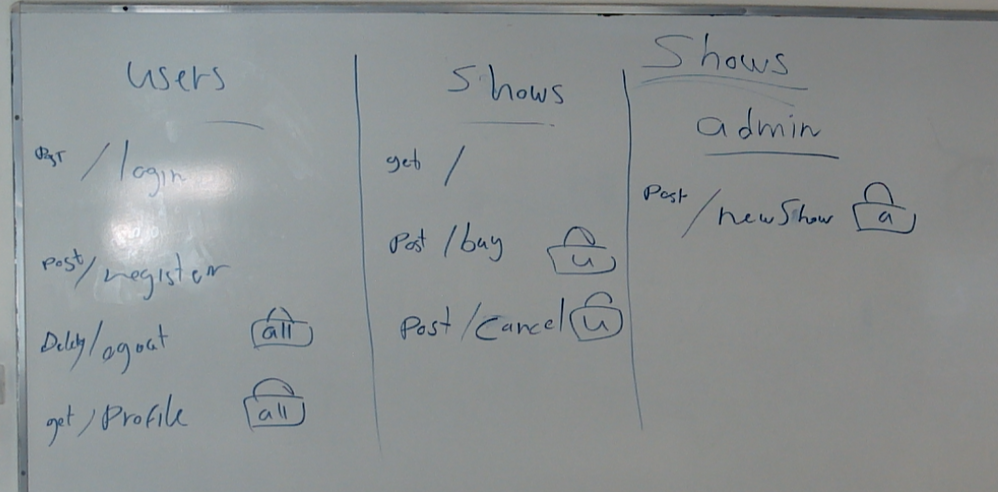 users
Post /login
Post /register
/logout all
get /Profile all
Shows
get /
Post /buy u
Post /Cancel u
Shows
admin
Post /newShow a